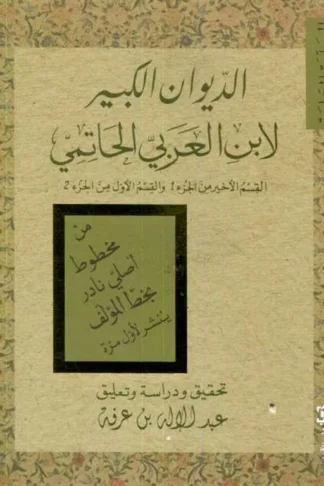 الديوان الكبير
لابن العَرَبي الحَاتِمي
القِسْمُ الأخير من الجزء ١ والقسم الأول من الجزء ٢
من
مخطوط
أصليّ نادر
بخطّ المؤلّف
ينشر لأول مرّة
تحقيق ودراسة وتعليق
عبد الإله بن عرفة